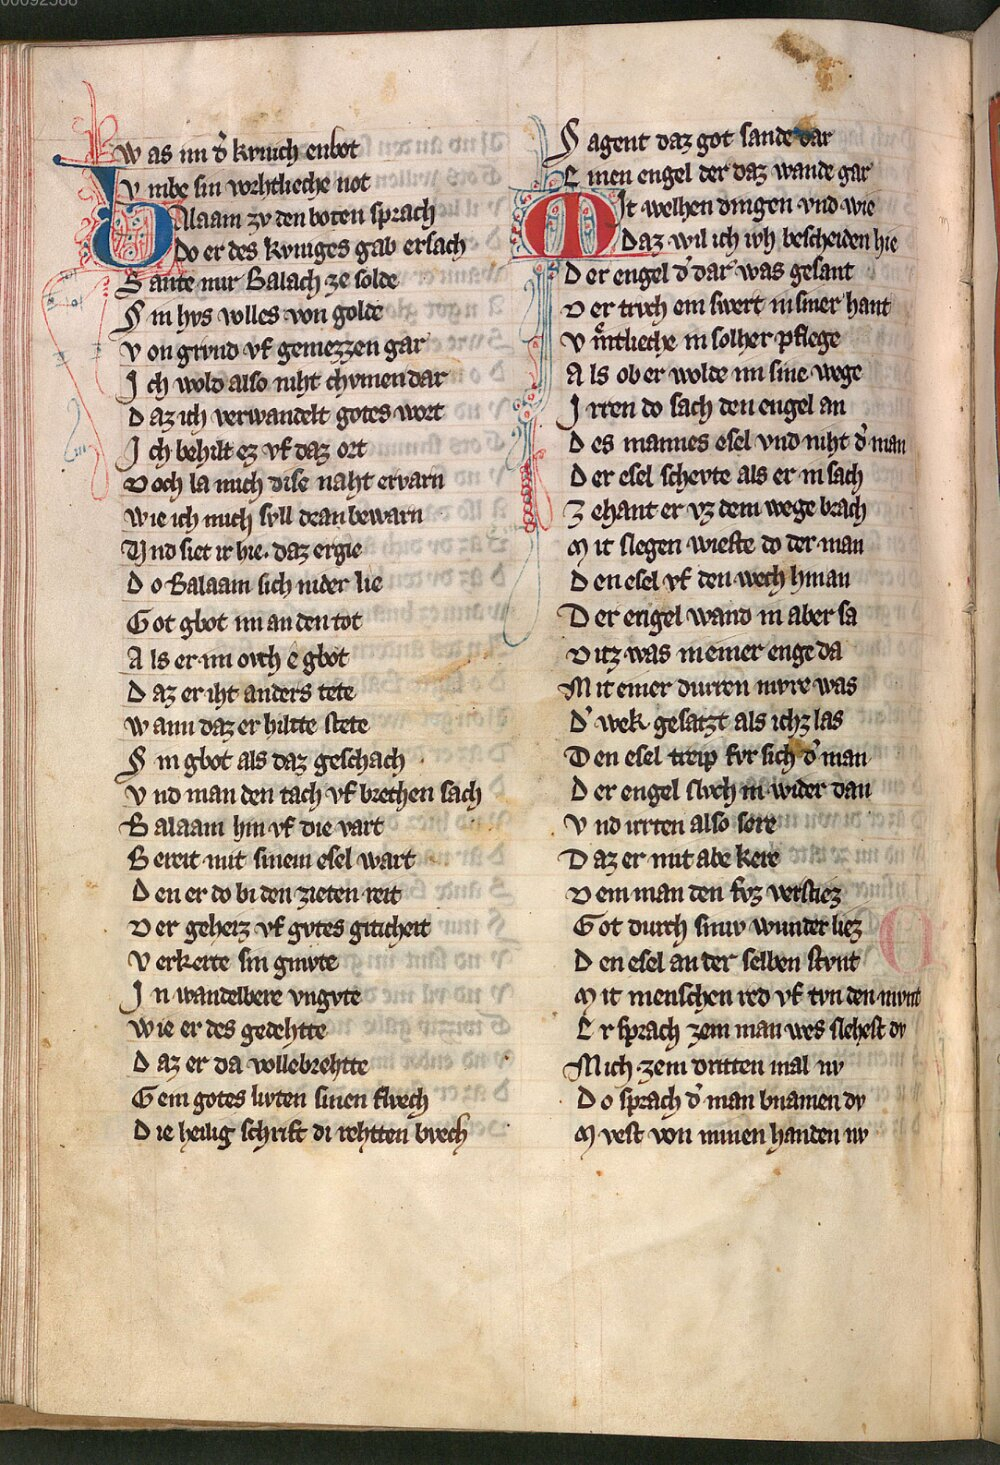 00092588
Was im d̾ kunich enbot
Vmbe sin vorhtlieche not
Balaam zv den boten sprach
Do er des kvniges gab ersach
Sante mir Balach ze solde
Sin hvs volles von golde
Von grvnd vf gemezzen gar
Ich wold also niht chvmen dar
Daz ich verwandelt gotes wort
Ich behilt ez vf daz ort
Doch la mich dise naht ervarn
Wie ich mich svll dran bewarn
Vnd siet ir hie. daz ergie
Do Balaam sich nider lie
Got gbot im an den tot
Als er im ovch e gbot
Daz er iht anders tete
Wann daz er hiltte stete
Sin gbot als daz geschach
Vnd man den tach vf brechen sach
Balaam hin vf die vart
Bereit mit sinem esel wart
Den er do bi den zieten reit
Der geheiz vf gvtes giticheit
Verkerte sin gmvte
In wandelbere vngvte
Wie er des gedehtte
Daz er da vollebrehtte
Gein gotes livten sinen flvech
Die heilig schrift di rehtten bvech
Sagent daz got sande dar
Einen engel der daz wande gar
Mit welhen dingen vnd wie
Daz wil ich ivh bescheiden hie
Der engel d̾ dar was gesant
Der trvch ein swert in siner hant
Vientlieche in solher pflege
Als ob er wolde im sine wege
Irren do sach den engel an
Des mannes esel vnd niht d̾ man
Der esel schevte als er in sach
Zehant er vz dem wege brach
Mit slegen wieste do der man
Den esel vf den wech hinan
Der engel wand in aber sa
Ditz was in einer enge da
Mit einer dvrren mvre was
D̾ wek gesatzt als ichz las
Den esel treip fvr sich d̾ man
Der engel slvch in wider dan
Vnd irrten also sere
Daz er mit abe kere
Dem man den fvz verstiez
Got durch siniv wunder liez
Den esel an der selben stvnt
Mit menschen red vf tvn den mvnt
Er sprach zem man wes slehest dv
Mich zem dritten mal nv
Do sprach d̾ man bnamen dv
Mvest von minen handen nv